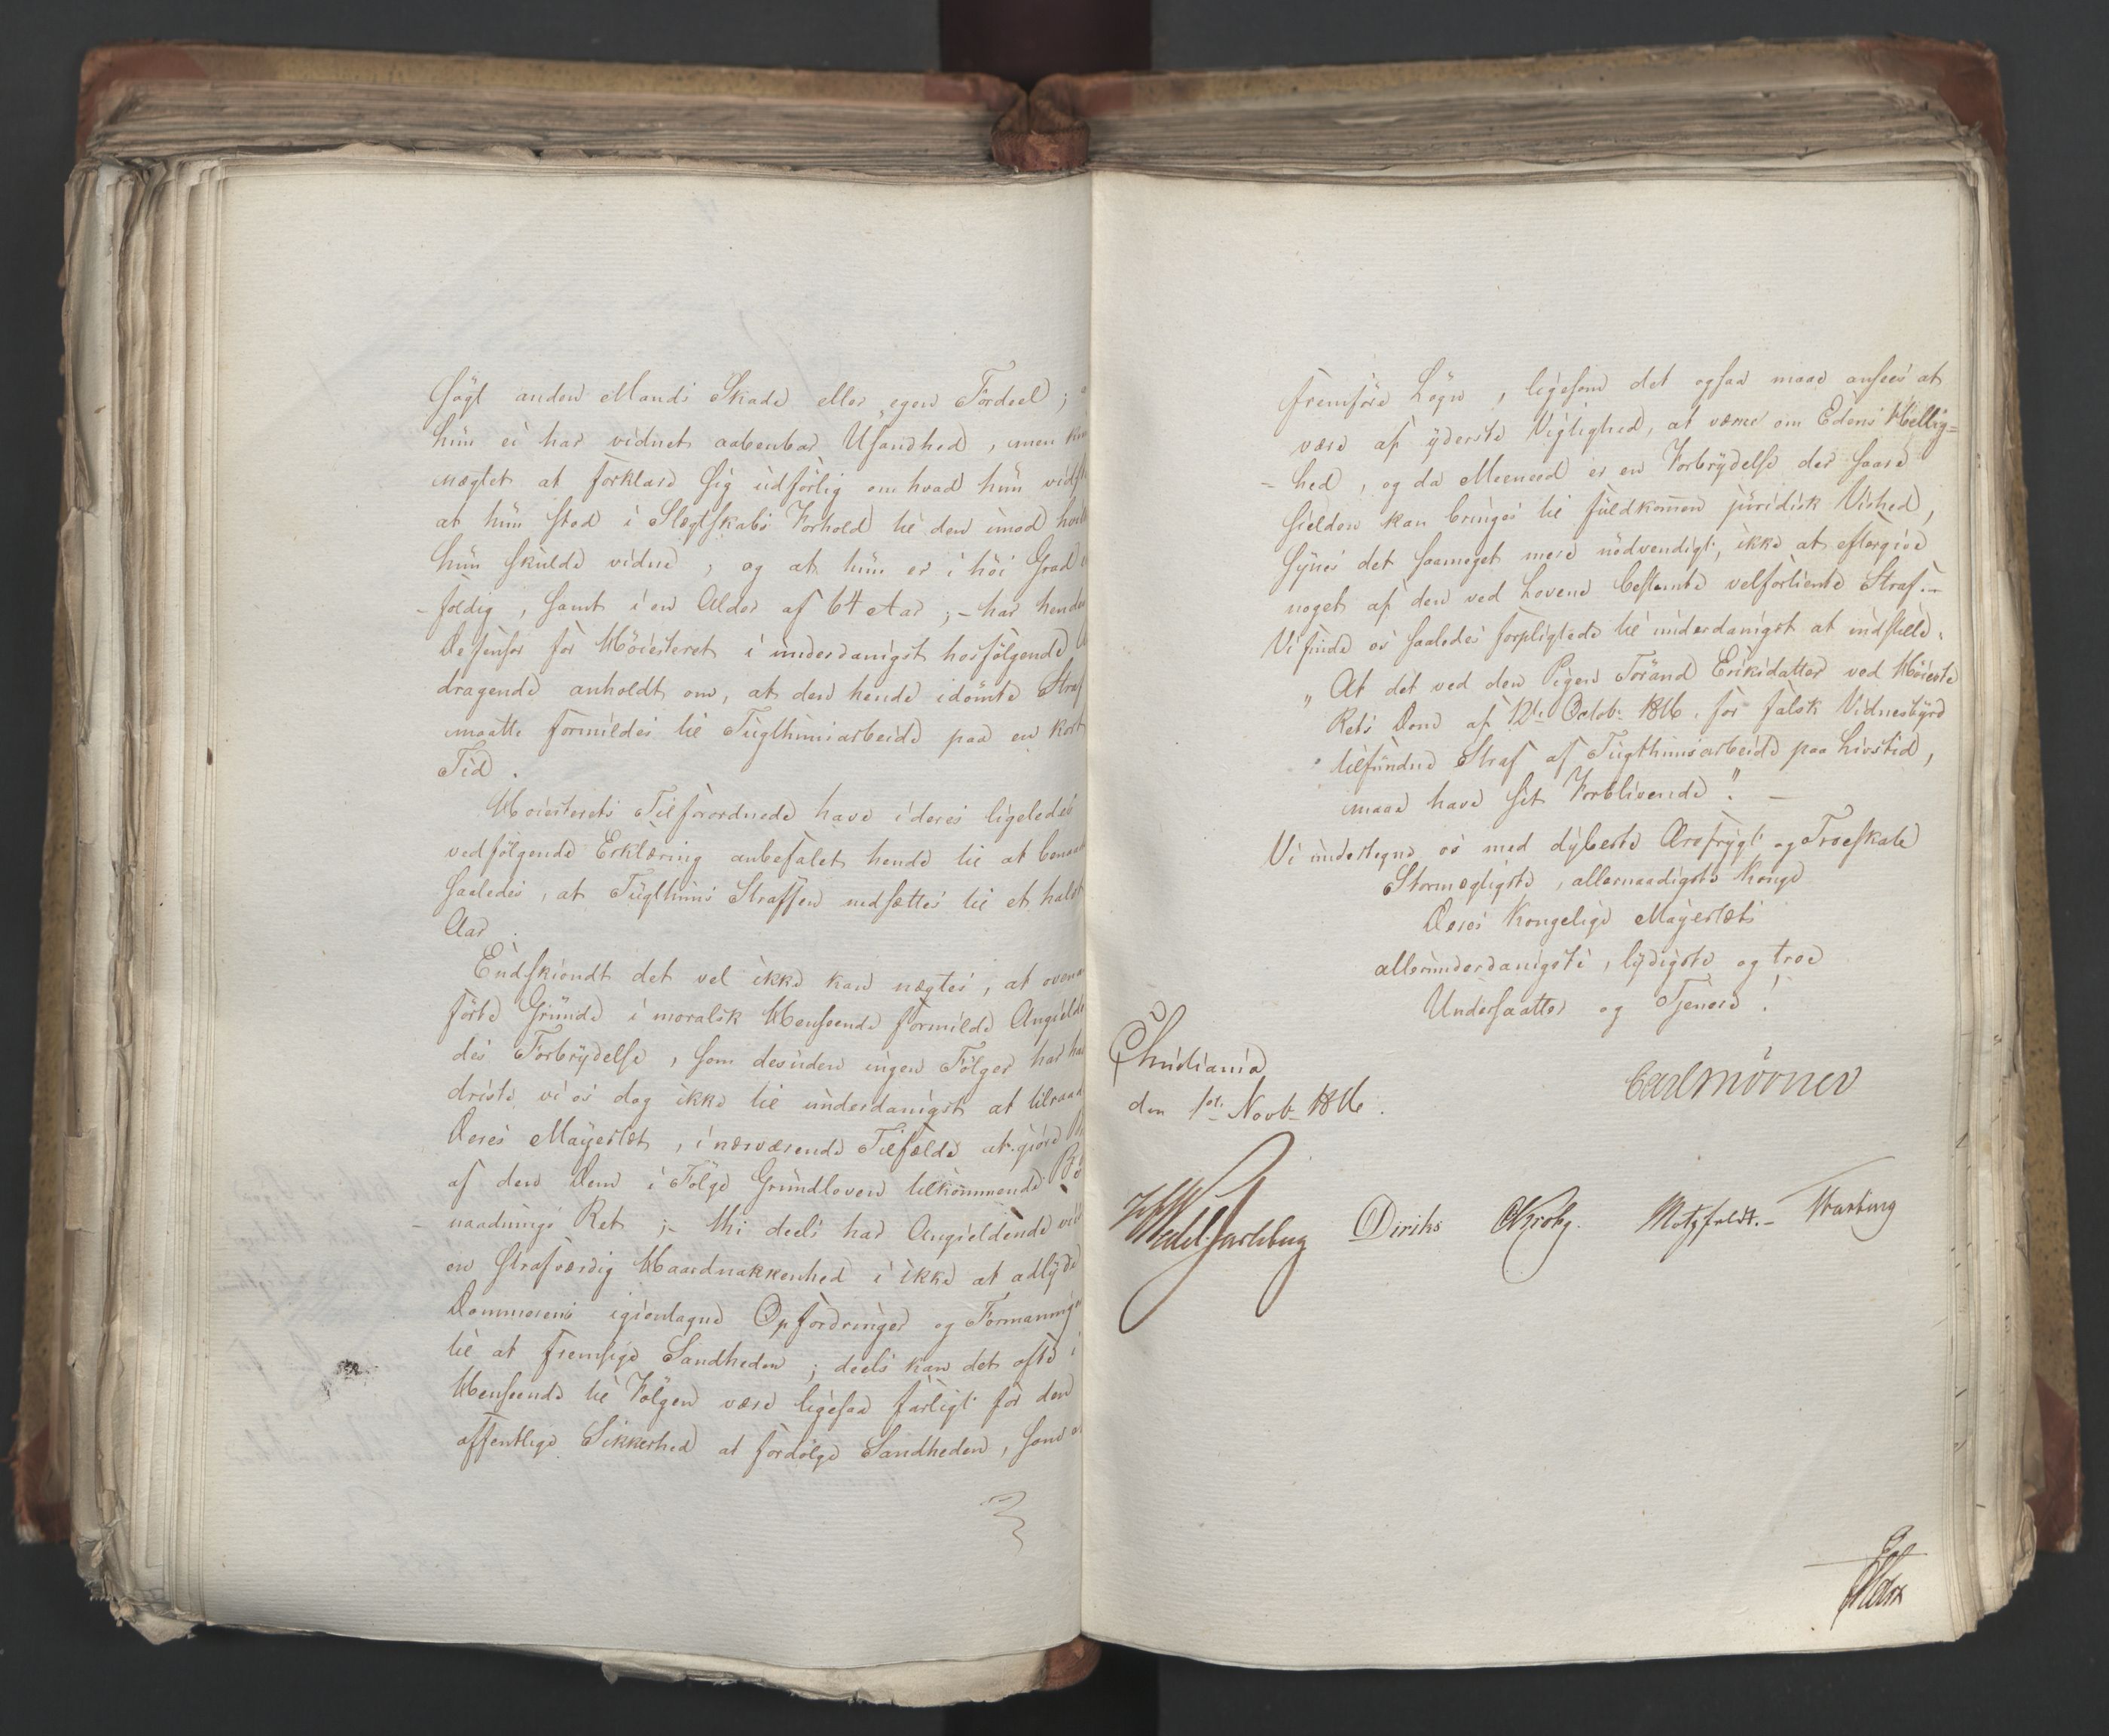 søgt anden Mands Skade eller egen Fordeel;
hun ei har vidnet aabenbar Usandhed, men
nægtet at forklare sig udførlig om hvad hun
at hun stod i Slægtskabs Forhold til den imod
hun skulde vidne, og at hun er i höi Grad
-foldig, samt i en Alder af 64 Aar; - har
Defensor for Höiesteret i underdanigst hosfølgende
dragende anholdt om, at den hende idömte
maatte formildes til Tugthuusarbeide paa en kort
Tid.
Höiesterets Tilforordnede have i deres ligeledes
vedfölgende Erklæring anbefalet hende til at
saaledes, at Tugthuus Straffen nedsættes til et halvt
Aar.
Endskiöndt det vel ikke kan nægtes, at
förte Grunde i moralsk Henseende formilde
des Forbrydelse, som desuden ingen Fölger har
driste vi os dog ikke til underdanigst at tilraade
Deres Mayestæt, i nærværende Tilfælde at giöre
af den Dem i Fölge Grundloven tilkommende
-naadnings Ret; - thi deels har Angieldende
en strafværdig Haardnakkenhed i ikke at adlyde
Dommerens igientagne Opfordringer og Formaninger
til at fremsige Sandheden; deels kan det ofte i
Henseende til Fölgen være ligesaa farligt for den
offentlige Sikkerhed at fordölge Sandheden, som
fremföre Lögn, ligesom det ogsaa maae ansees at
være af yderste Vigtighed, at værne om Edens Hellig=
-hed, og da Meeneed er en Forbrydelse der saare
sielden kan bringes til fuldkommen juridisk Vished,
synes det saameget mere nödvendigt, ikke at eftergive
noget af den ved Lovene bestemte velfortiente Straf. -
Vi finde os saaledes forpligtede til underdanigst at indstille:
„At det ved den Pigen Törand Eriksdatter ved Höieste
Rets Dom af 12te Octob: 1816. for falsk Vidnesbyrd
" tilfundne Straf af Tugthuusarbeide paa Livstid,
maae have sit Forblivende". -
Vi undertegne os med dybeste Ærefrygt og Troeskab
Stormægtigste, allernaadigste Konge
Deres Kongelige Mayestæts
allerunderdanigste, lydigste og troe
Undersaatter og Tjenere!
Christiania
den 1ste Novb. 1816.
Carl Mörner
Wedel Jarlsberg Diriks CKrohg. Motzfeldt. -